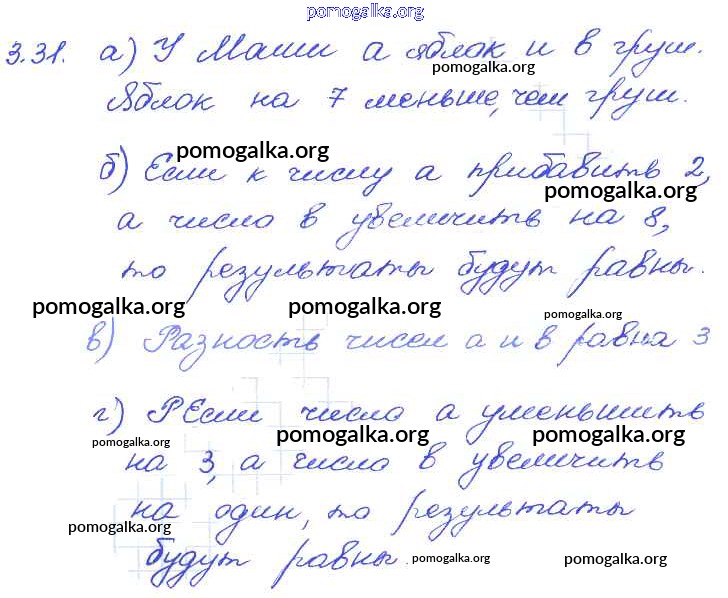 pomogalka.org
3.31. а) У Маши а яблок и в груш.
pomogalka.org
Яблок на 7 меньше, чем груш.
pomogalka.org
pomogalka.org
б) Если к числу а прибавить 2,
pomogalka.org
а число в увеличить на 8,
то результаты будут равны.
pomogalka.org pomogalka.org pomogalka.org
в) Разность чисел а и в равна 3
г) РЕсли число а уменьшить
pomogalka.org pomogalka.org pomogalka.org
на 3, а число в увеличить
на один, то результаты
pomogalka.org
будут равны.
pomogalka.org pomogalka.org